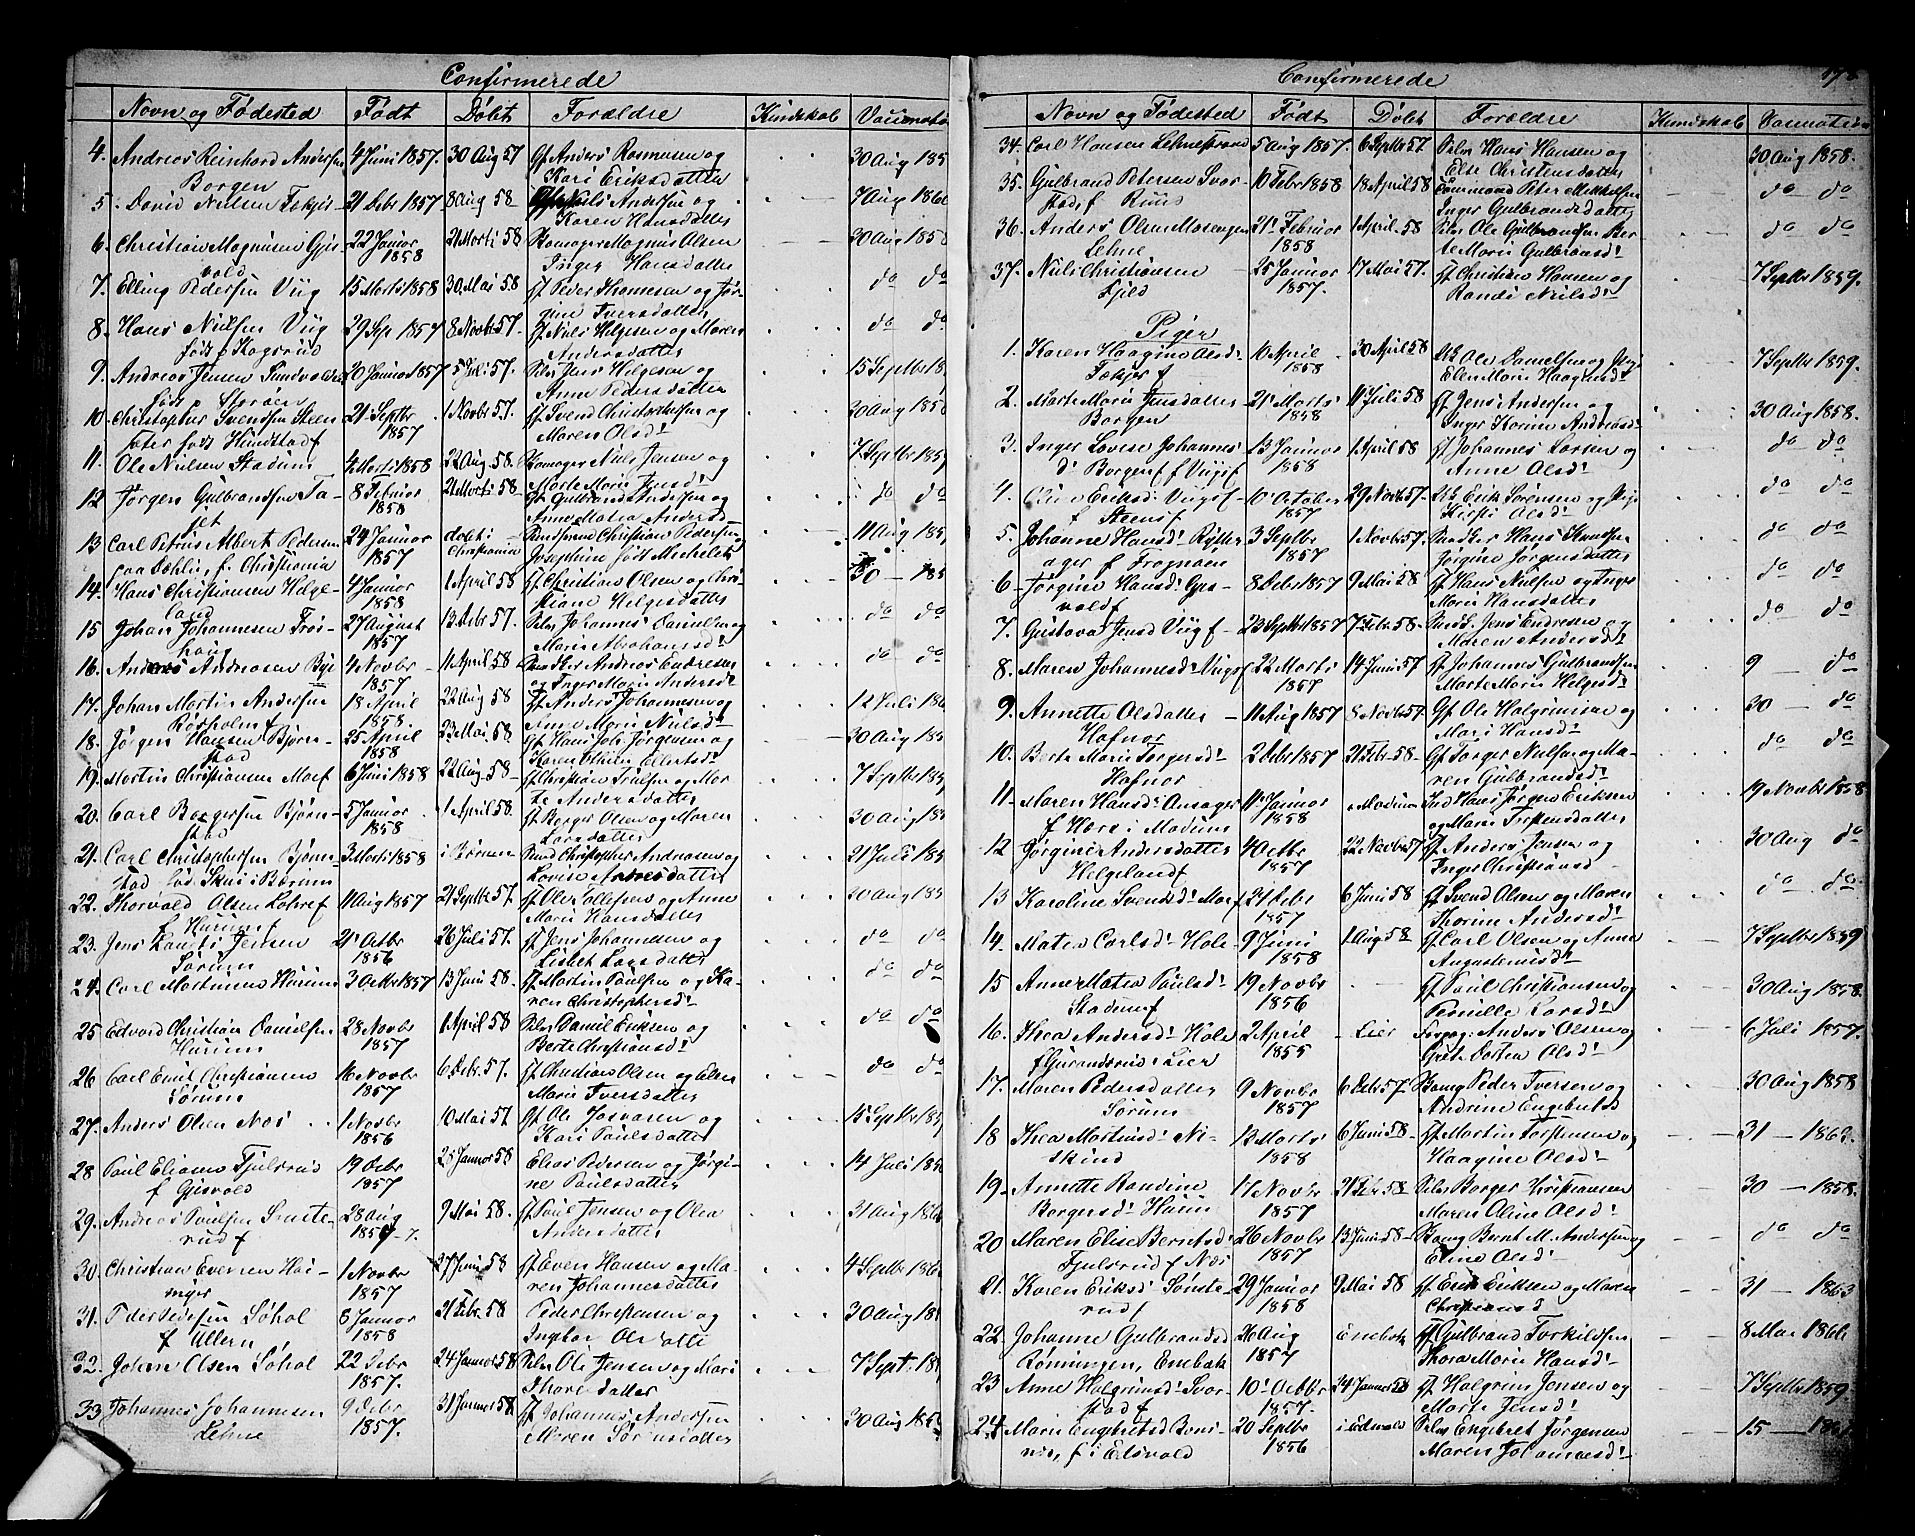 Confirmerede
Novn og Fødested Født Døbt Forældre Kundskab Vaccination
4. Andreas Reinhard Andersen 4 Juni 1857. 30 Aug 57 Gf Anders Rasmusen og 30 Aug 185
Borgen Kari Eriksdatter
5. David Nielsen 21 Debr 1857 8 Aug 58 Niels Andersen og 7 Aug 186
Karen Hansdatter
6. Christian Magnusen Gjes- 22 Januar 21 Marti 58 Magnus Olsen 30 Aug 1858
vold 1858 Inger Hansdatter
7. Elling Pedersen Viig 15 Marti 1858 30 Mai 58 gf Peder Thomesen og Jør- do do
gine Iversdatter
8. Hans Nielsen Viig 29 Sep 1857 8 Novbr 57. gf Niels Helgesen og Maren do do
født Andersdatter
9. Andreas Jensen Sundvolden 20 Januar 1857 5 Juli 57. Jens Helgesen og 15 Septbr 18
Anne Pedersdatter
10. Christopher Svendsen Steen 21 Septbr 1 Novbr 57. gf Svend Christophersen og 30 Aug 1858
1857 Maren Olsd:
11. Ole Nielsen Stadum 4 Marti 1858 22 Aug. 58. Niels Jensen og 7. Septbr 185
Marte Marie Jensd:
12 Jørgen Gulbrandsen Ta- 8 Februar 21 Marti 58 gf Gulbrand Andersen og do do
jet 1858 Anne Matea Andersd
13 Carl Petrus Albert Pedersen 24 Januar døbt i Christian Pedersen 11 Aug 185
paa Dæhlie, f. Christiania 1857 Christiania Josephine født Michelet
14. Hans Christiansen Helge- 4 Januar 1 April 58 gf Christian Olsen og Chri- 30 — 185
land 1858 stiane Helgesdatter
15 Johan Johannesen Frøs- 27 August 13 Debr 57. Johannes Danielsen og do do
houg 1857 Marie Abrahamsd:
16. Andreas Andreasen Bye 4 Novbr 11 April 58 Andreas Endresen do do
1857 og Inger Marie Andersd:
17. Johan Martin Andersen 18 April 22 Aug 58 gf Anders Johannesen og 12 Juli 186
Rørholm f 1858. Anne Marie Nielsd:
18. Jørgen Hansen Bjørn- 25 April 23 Mai 58. gf Hans Joh: Jørgensen og 30 Aug 185
stad 1858 Karen Oline Eilertsd:
19. Martin Christiansen Moe f 6 Juni 1858 22 Aug. 58 gf Christian Truelsen og Mar 7 Septbr 185
te Andersdatter
20. Carl Borgersen Bjørn- 5 Januar 1 April 58. gf Borger Olsen og Maren 30 Aug 185
stad 1858 Larsdatter
21. Carl Christophersen Bjørn- 3 Marti 1858 i Bærum Christopher Andreasen og 21 Juli 185
stad fød. Skui i Bærum Lovise Arnesdatter
22. Thorvald Olsen Lohre f 11 Aug 1857 21 Septbr 57. gf Ole Tollefsen og Anne 20 Aug 185
f Hurum Marie Hansdatter
23. Jens Lauritz Jensen 21 Octbr 26 Juli 57. gf Jens Johannesen og do do
Sørum 1856 Lisbet Larsdatter
24. Carl Martinsen Hurum 3 Octbr 1857 13 Juni 58. gf Martin Paulsen og Ka- do do
ren Christophersd:
25 Edvard Christian Danielsen 28 Novbr 1 April 58 Daniel Eriksen og do do
Hurum 1857 Berte Christiansd:
26 Carl Emil Christiansen 16 Novbr 6 Debr. 57. gf Christian Olsen og Elen do do
Sørum 1857 Marie Iversdatter
27. Anders Olsen Næs 1 Novbr 10 Mai 57 gf Ole Josvasen og 15 Septbr 185
1856 Kari Paulsdatter
28 Paul Eliasen Fjulsrud 19 Debr 25 Januar 58 Elias Pedersen og Jørgi- 14 Juli 185
f Gjesvold 1857 ne Paulsdatter
29. Andreas Paulsen Smette- 28 Aug 9 Mai 58. gf Paul Jensen og Olea 31 Aug 186
rud f 1857 Andersdatter
30. Christian Evensen Hæi- 1 Novbr 27 Juni 58 gf Even Hansen og Ma- 4 Septbr 186
1857 ren Johannesdatter
31. Peder Pedersen Søhol 8 Januar 21 Febr. 58 Peder Christensen og 30 Aug 185
f Ullern 1858 Ingebor Olsdatter
32. Johan Olsen Søhol 22 Debr 24 Januar 58 Ole Jensen og Mari 7 Sept. 18
1857. Thoresdatter
33 Johannes Johannesen 9 Debr 31 Januar 58 gf Johannes Andersen 30 Aug 185
Lehne 1857. Maren Sørensdatter
Confirmerede
Novn og Fødested Født Døbt Forældre Kundskab Vaccination
34. Carl Hansen Lehnestrand 5 Aug 1857. 6 Septbr 57. Hans Hansen og 30 Aug 1858.
Else Christensdatter
35. Gulbrand Petersen Svar- 10 Febr 1858 18 April 58 Peter Mikkelsen do do
stad, f Inger Gulbrandsdatter
36. Anders Olsen Mosengen 21 Februar 1 April 58 Ole Gulbrandsen Ber do do
Lehne 1858 te Marie Gulbrandsd:
37. Niels Christiansen 25 Januar 17 Mai 57. gf Christian Hansen og 7 Septbr 1859.
Fjeld 1857. Randi Nielsd:
Piger
1. Karen Haagine Olsd: 10 April 30 April 58 Ole Danielsen og 7 Septbr 1859.
f 1858 Elen Marie Haagensd:
2. Marte Marie Jensdatter 21 Marts 11 Juli 58 gf Jens Andersen og 30 Aug 1858.
Borgen 1858 Inger Karine Andreasd:
3. Inger Lovise Johannes 13 Januar 1 April 58 gf Johannes Larsen og do do
d: Borgen f Viigs f 1858 Anne Olsd:
4. Eriksd: Viigs f 10 October 29 Novbr 57. Erik Sørensen og do do
f Steens f 1857 Kirsti Olsd:
5. Johanne Hansd: Rytter- 3 Septbr 1 Novbr 57. Hans Knudsen do do
ager f Frognøen 1857 Jørgine Jørgensdatter
6 Jørgine Hansd: Gjes- 8 Debr 1857 9 Mai 58 gf Hans Nielsen og Inger do do
vold f Marie Hansdatter
7. Gustava Jensd Viig f 23 Septbr 1857 7 Febr 58. Jens Endresen og do do
Maren Andersd:
8. Maren Johannesd: Viigs f 22 Marts 14 Juni 57 gf Johannes Gulbrandsen 9 — do
1857 Marte Marie Helgesd:
9. Annette Olsdatter 11 Aug 1857 8 Novbr 57. Gf Ole Halgrimsen og 30 — do
Hafnor Mari Hansd:
10. Berte Marie Torgersd: 2 Debr 1857 21 Febr 58. Gf Torger Nielsen og Ma- do do
Hafnor ren Gulbrandsd:
11. Maren Hansd: Onsager 11 Januar Modum Hans Jørgen Eriksen 19 Novbr 1858
f Hære i Modum 1858 og Marie Torstensdatter
12 Jørgine Andersdatter 4 Octbr 22 Novbr 57 gf Anders Jensen og 30 Aug do
Helgeland f 1857 Inger Christiansd:
13 Karoline Svendsd: Moe f 21 Debr 6 Juni 58 gf Svend Olsen og Maren do do
1857 Thorine Andersd:
14. Matea Carlsd: Hole 9 Juni 1 Aug 58 gf Carl Olsen og Anne 7 Septbr 1859
1858 Augustinusd:
15 Anne Matea Paulsd: 19 Novbr gf Paul Christiansen og 30 Aug 1858.
Stadum f 1856 Pernille Larsd:
16. Thea Andersd: Hole 2 April Lier Anders Olsen og 6 Juli 1857.
i Lier 1855 Olsd:
17. Maren Pedersdatter 9 Novbr 6 Debr 57 Peder Iversen og 30 Aug 1858
Sørum 1857 Andrine Engebretsd
18 Thea Martinsd: Ni- 13 Marts 6 Juni 58 gf Martin Torstensen og 31 — 1863.
skind 1858 Haagine Olsd:
19. Annette Randine 17 Novbr 21 Febr 58 Borger Christiansen 30 — 1858.
Borgersd: Hurum 1857 Maren Oline Olsd:
20 Maren Elise Berntsd 26 Novbr 13 Juni 58 Bernt M. Andersen og do do
Fjulsrud f Næs 1857 Eline Olsd:
21. Karen Eriksd: Sønste- 29 Januar 9 Mai 58 gf Erik Eriksen og Maren 31 — 1863
rud f 1858 Christiansd
22. Johanne Gulbrandsd 26 Aug Enebak gf Gulbrand Torkildsen 8 Mai 186
Rønningen, Enebak 1857 Thora Marie Hansd:
23 Anne Halgrimsd: Svar- 10 Octbr 24 Januar 58 gf Halgrim Jensen og 7 Septbr 1859.
stad f 1857. Marte Jensd:
24 Marie Engebretsd 20 Septbr i Eidsvold Engebret Jørgensen 15 — 186
f i Eidsvold 1856 Maren Johannesd: